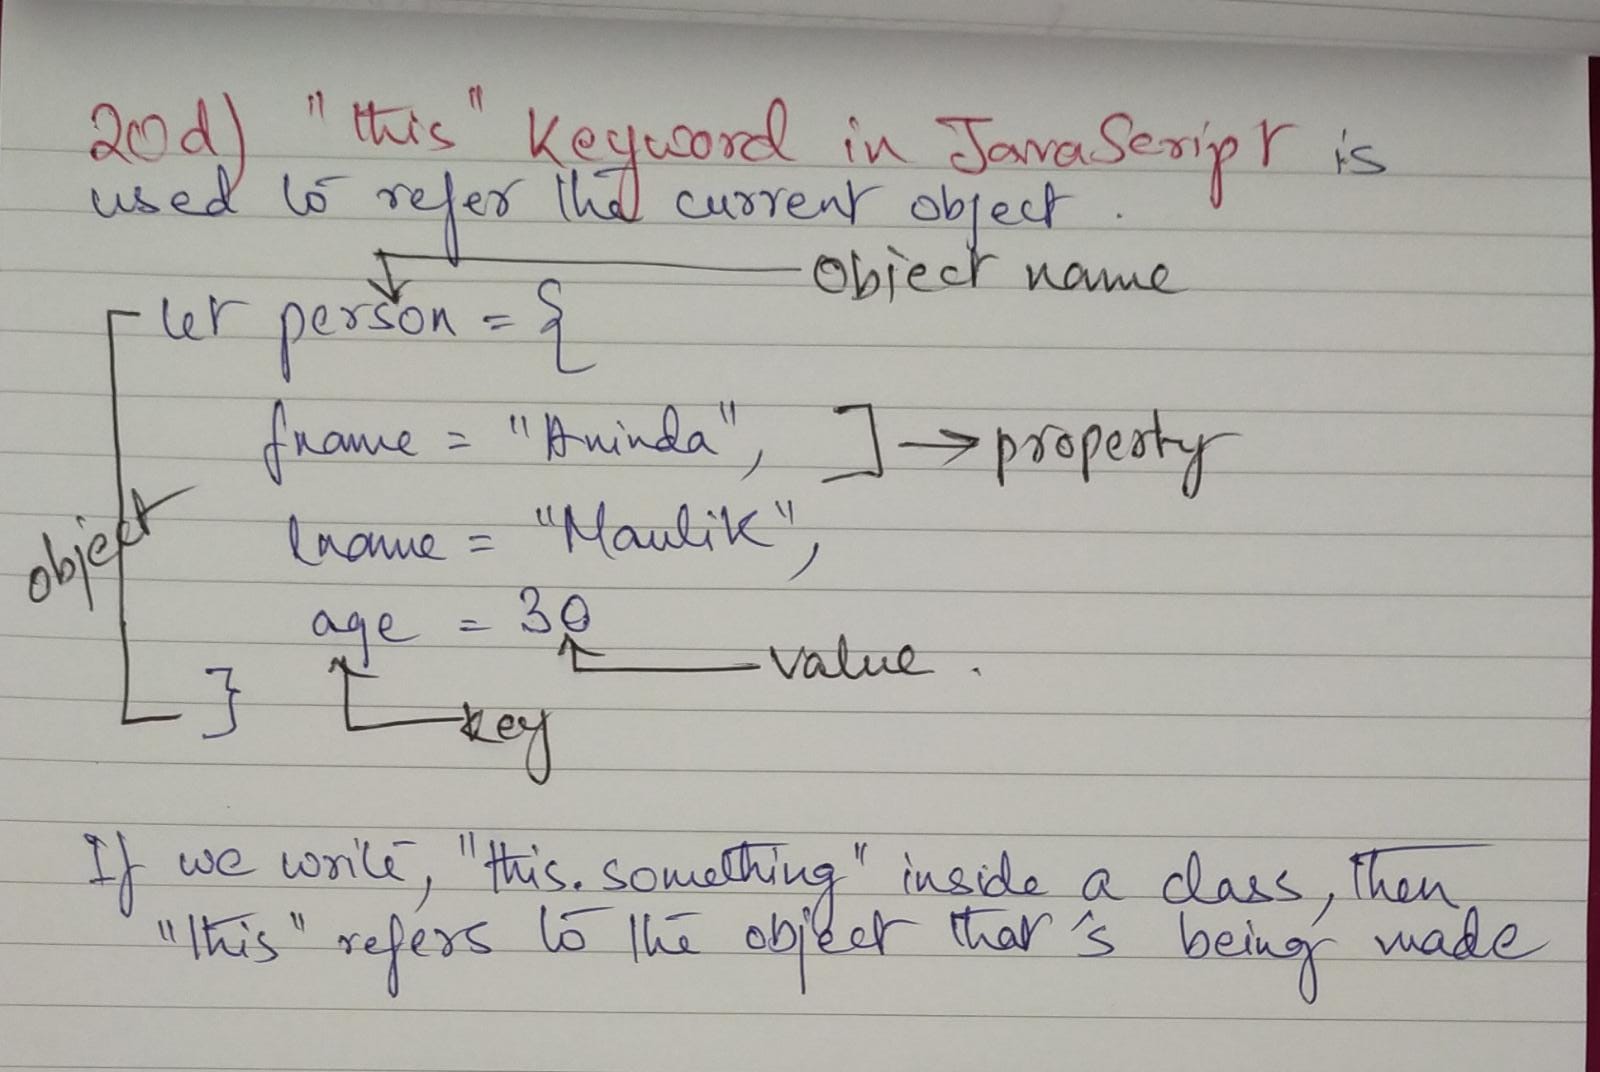 20d) "this" Keyword in JavaScript is
used to refer the current object.
Object name
let person = {
fname = "Aninda", ] → property
lname = "Maulik",
object
age = 30
value.
}
key
If we write, "this.something" inside a class, then
"this" refers to the object that's being made